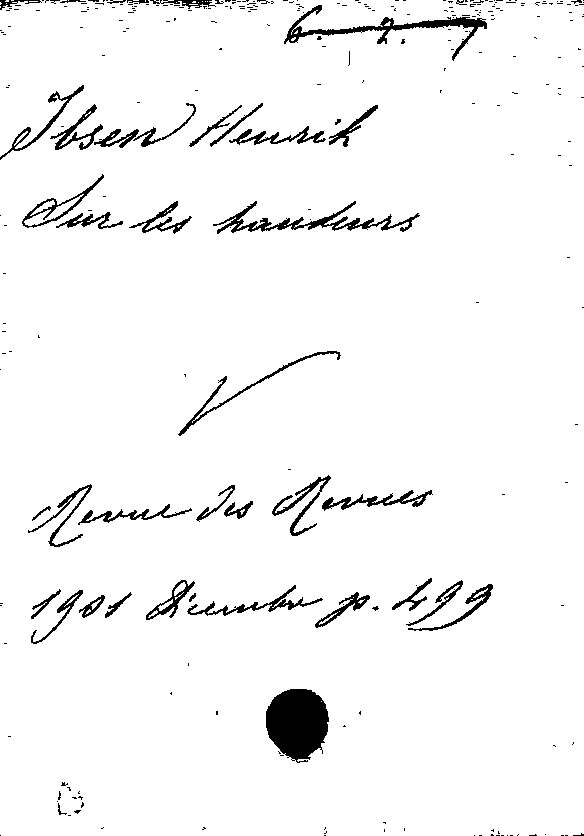 6. 2. 7
Ibsen Henrik
Sur les hauteurs
V
Revue des Revues
1901 Dicembre p. 499